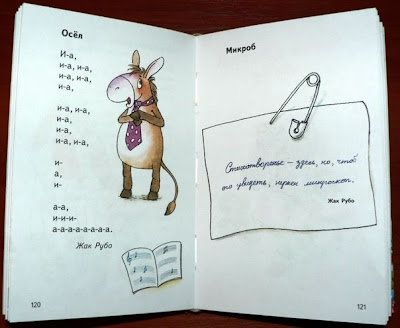 Осёл
И-а,
и-а, и-а,
и-а, и-а,
и-а,
и-а, и-а,
и-а,
и-а,
и-а, и-а,
и-
а,
и-
а-а,
и-и-и-
а-а-а-а-а-а-а.
Жак Рубо
120
Микроб
Стихотворенье – здесь, но, чтоб
его увидеть, нужен микроскоп.
Жак Рубо
121